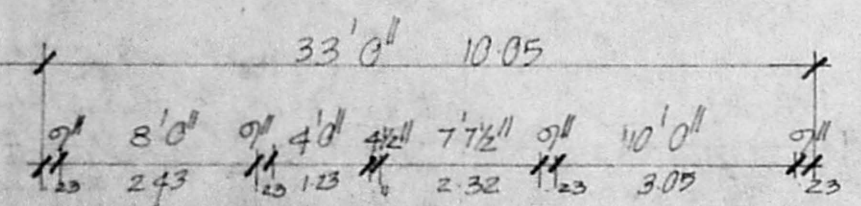 33'0" 10.05
9" 8'0" 9" 4'0" 4½" 7'7½" 9" 10'0" 9"
23 2.43 23 1.23 2.32 23 3.05 23